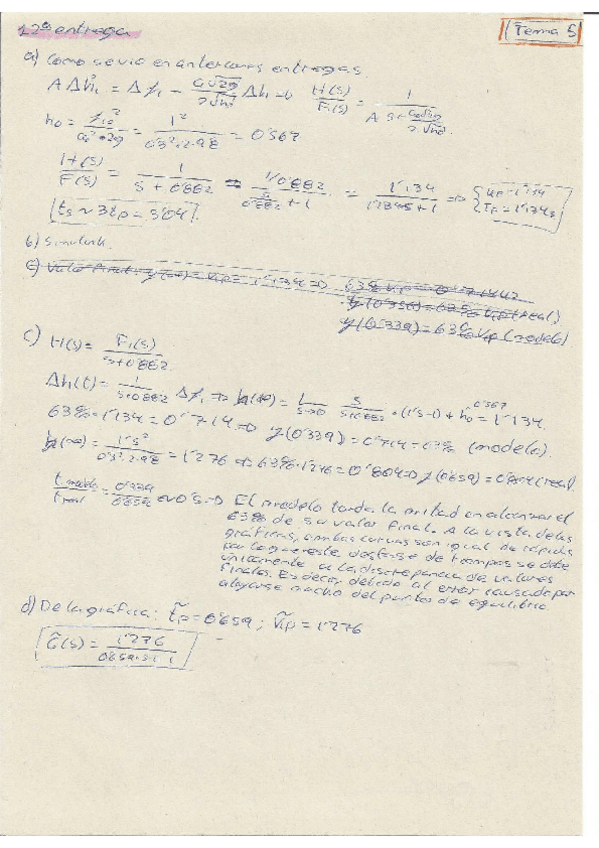 12ª entrega
Tema 5
a) Como se vio en anteriores entregas
A Δḣ₁ = Δf₁ - a√2g / 2√h₀ Δh → H(s)/F₁(s) = 1 / A s + a√2g / 2√h₀
h₀ = f₁₀² / a₀²·2g = 1² / 0'3²·2·9'8 = 0'567
H(s)/F(s) = 1 / s + 0'882 = 1/0'882 / s/0'882 + 1 = 1'134 / 1'134s + 1 ⇒ { Kp = 1'134
Tp = 1'134s
ts ≈ 3tp = 3'04
b) Simulink.
c) Valor final: y(∞) = Kp = 1'134 ⇒ 63% Kp =
= 63% Kp (real)
y(0'339) = 63% Kp (modelo)
c) H(s) = F₁(s) / s+0'882
Δh(t) = 1 / s+0'882 Δf₁ ⇒ h(∞) = L s→0 s / s+0'882 · (1'5-1) + h₀ 0'567 = 1'134.
63% · 1'134 = 0'714 ⇒ y(0'339) = 0'714 = 63% (modelo).
h(∞) = 1'5² / 0'3²·2·9'8 = 1'276 ⇒ 63% · 1'276 = 0'804 ⇒ y(0'659) = 0'804 (real)
t modelo / t real = 0'339 / 0'659 ≈ 0'5 ⇒ El modelo tarda la mitad en alcanzar el
63% de su valor final. A la vista de las
gráficas, ambas curvas son igual de rápidas
por lo que este desfase de tiempos se debe
únicamente a la discrepancia de valores
finales. Es decir, debido al error causado por
alejarse mucho del punto de equilibrio.
d) De la gráfica: t̃p = 0'659 ; k̃p = 1'276
G̃(s) = 1'276 / 0'659·s+1